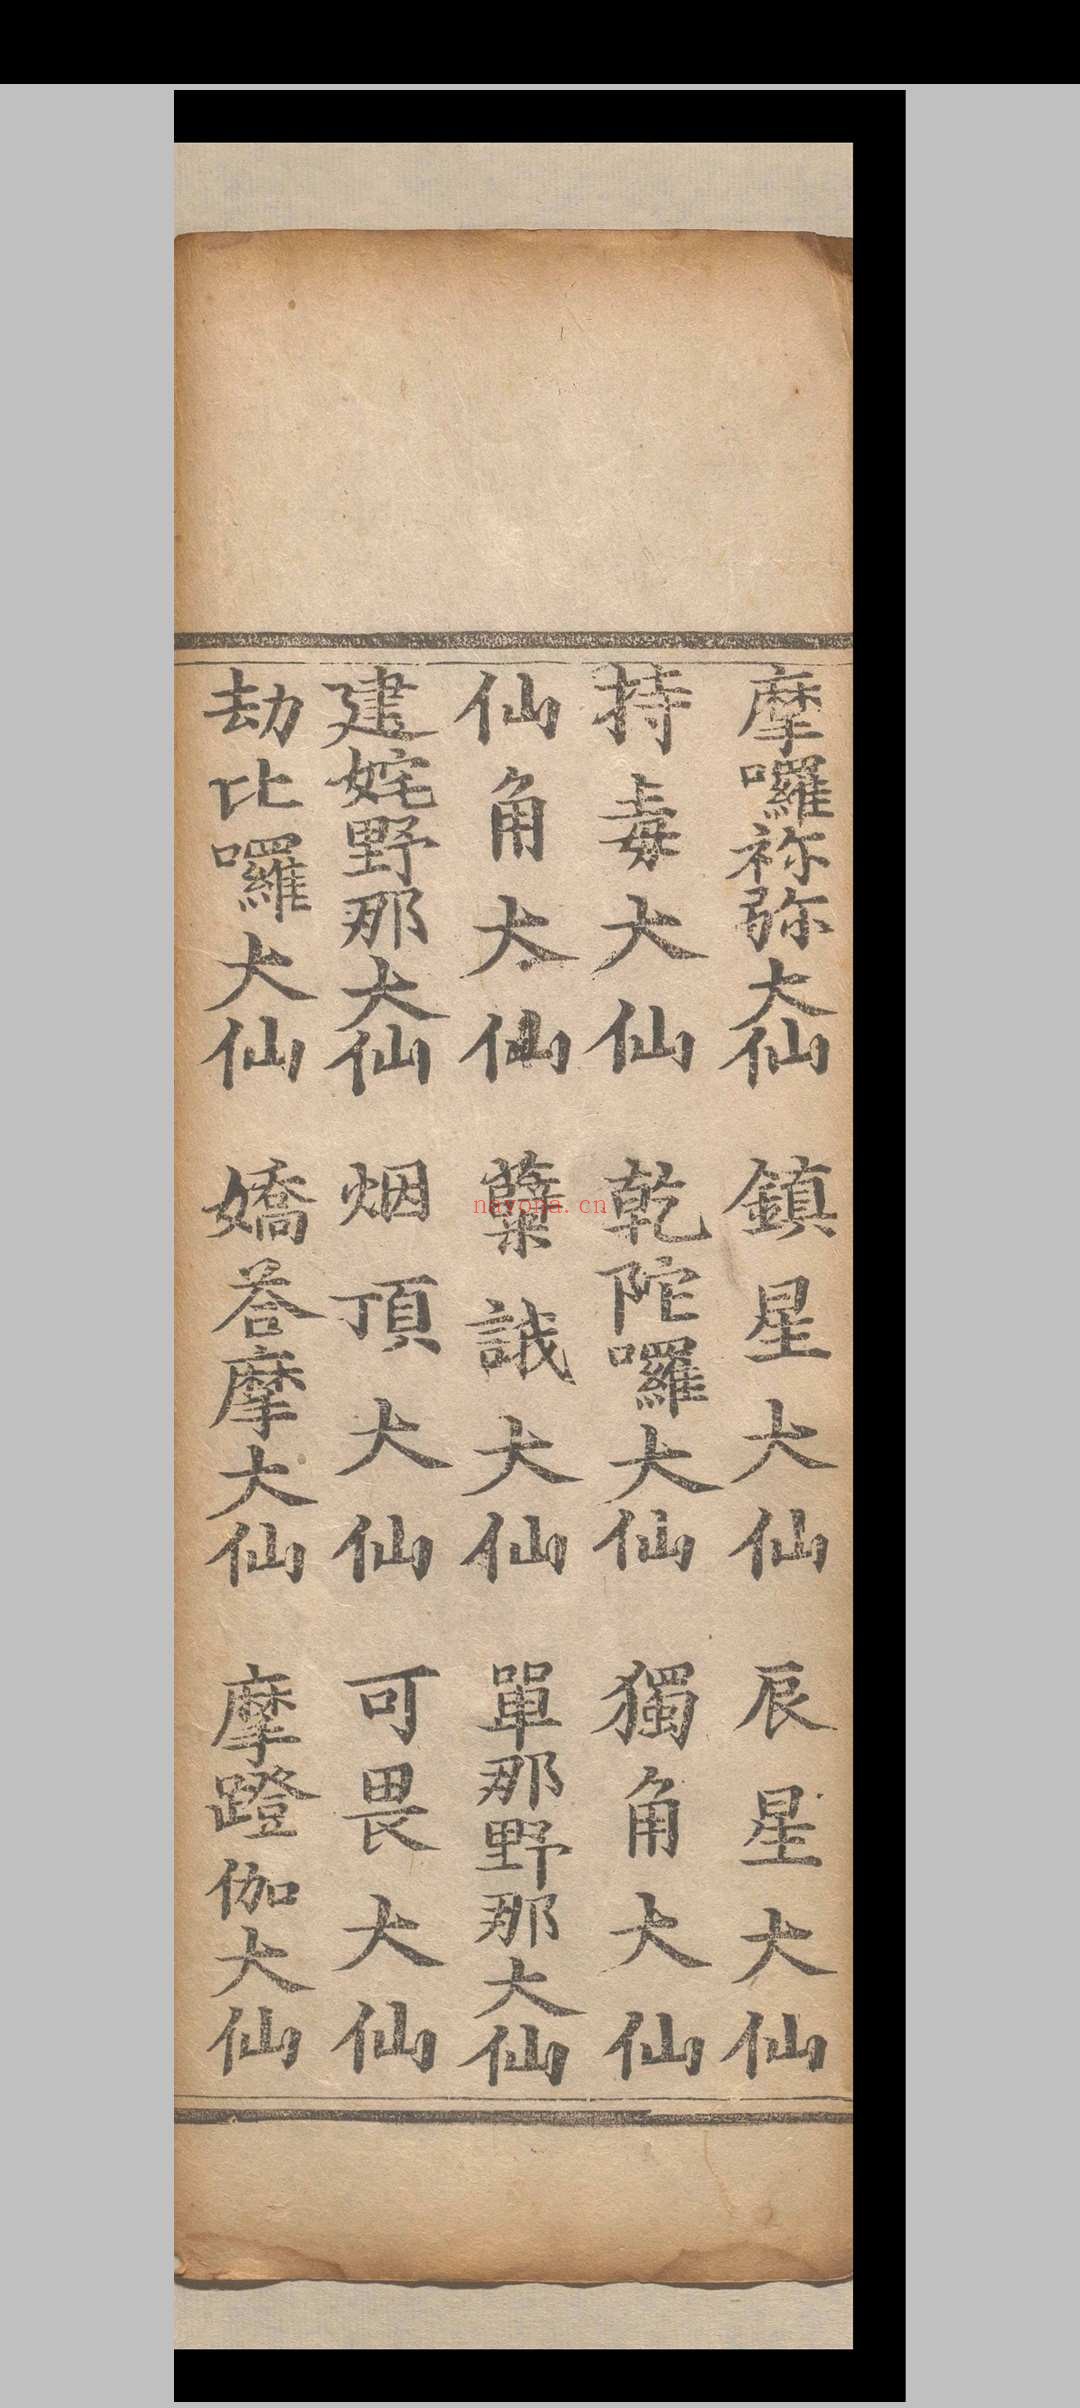 摩囉祢弥大仙　鎮星大仙　辰星大仙
持毒大仙　乾陀囉大仙　獨角大仙
仙角大仙　蘖誐大仙　單那野那大仙
建姹野那大仙　烟頂大仙　可畏大仙
劫比囉大仙　嬌荅摩大仙　摩蹬伽大仙
nayona.cn